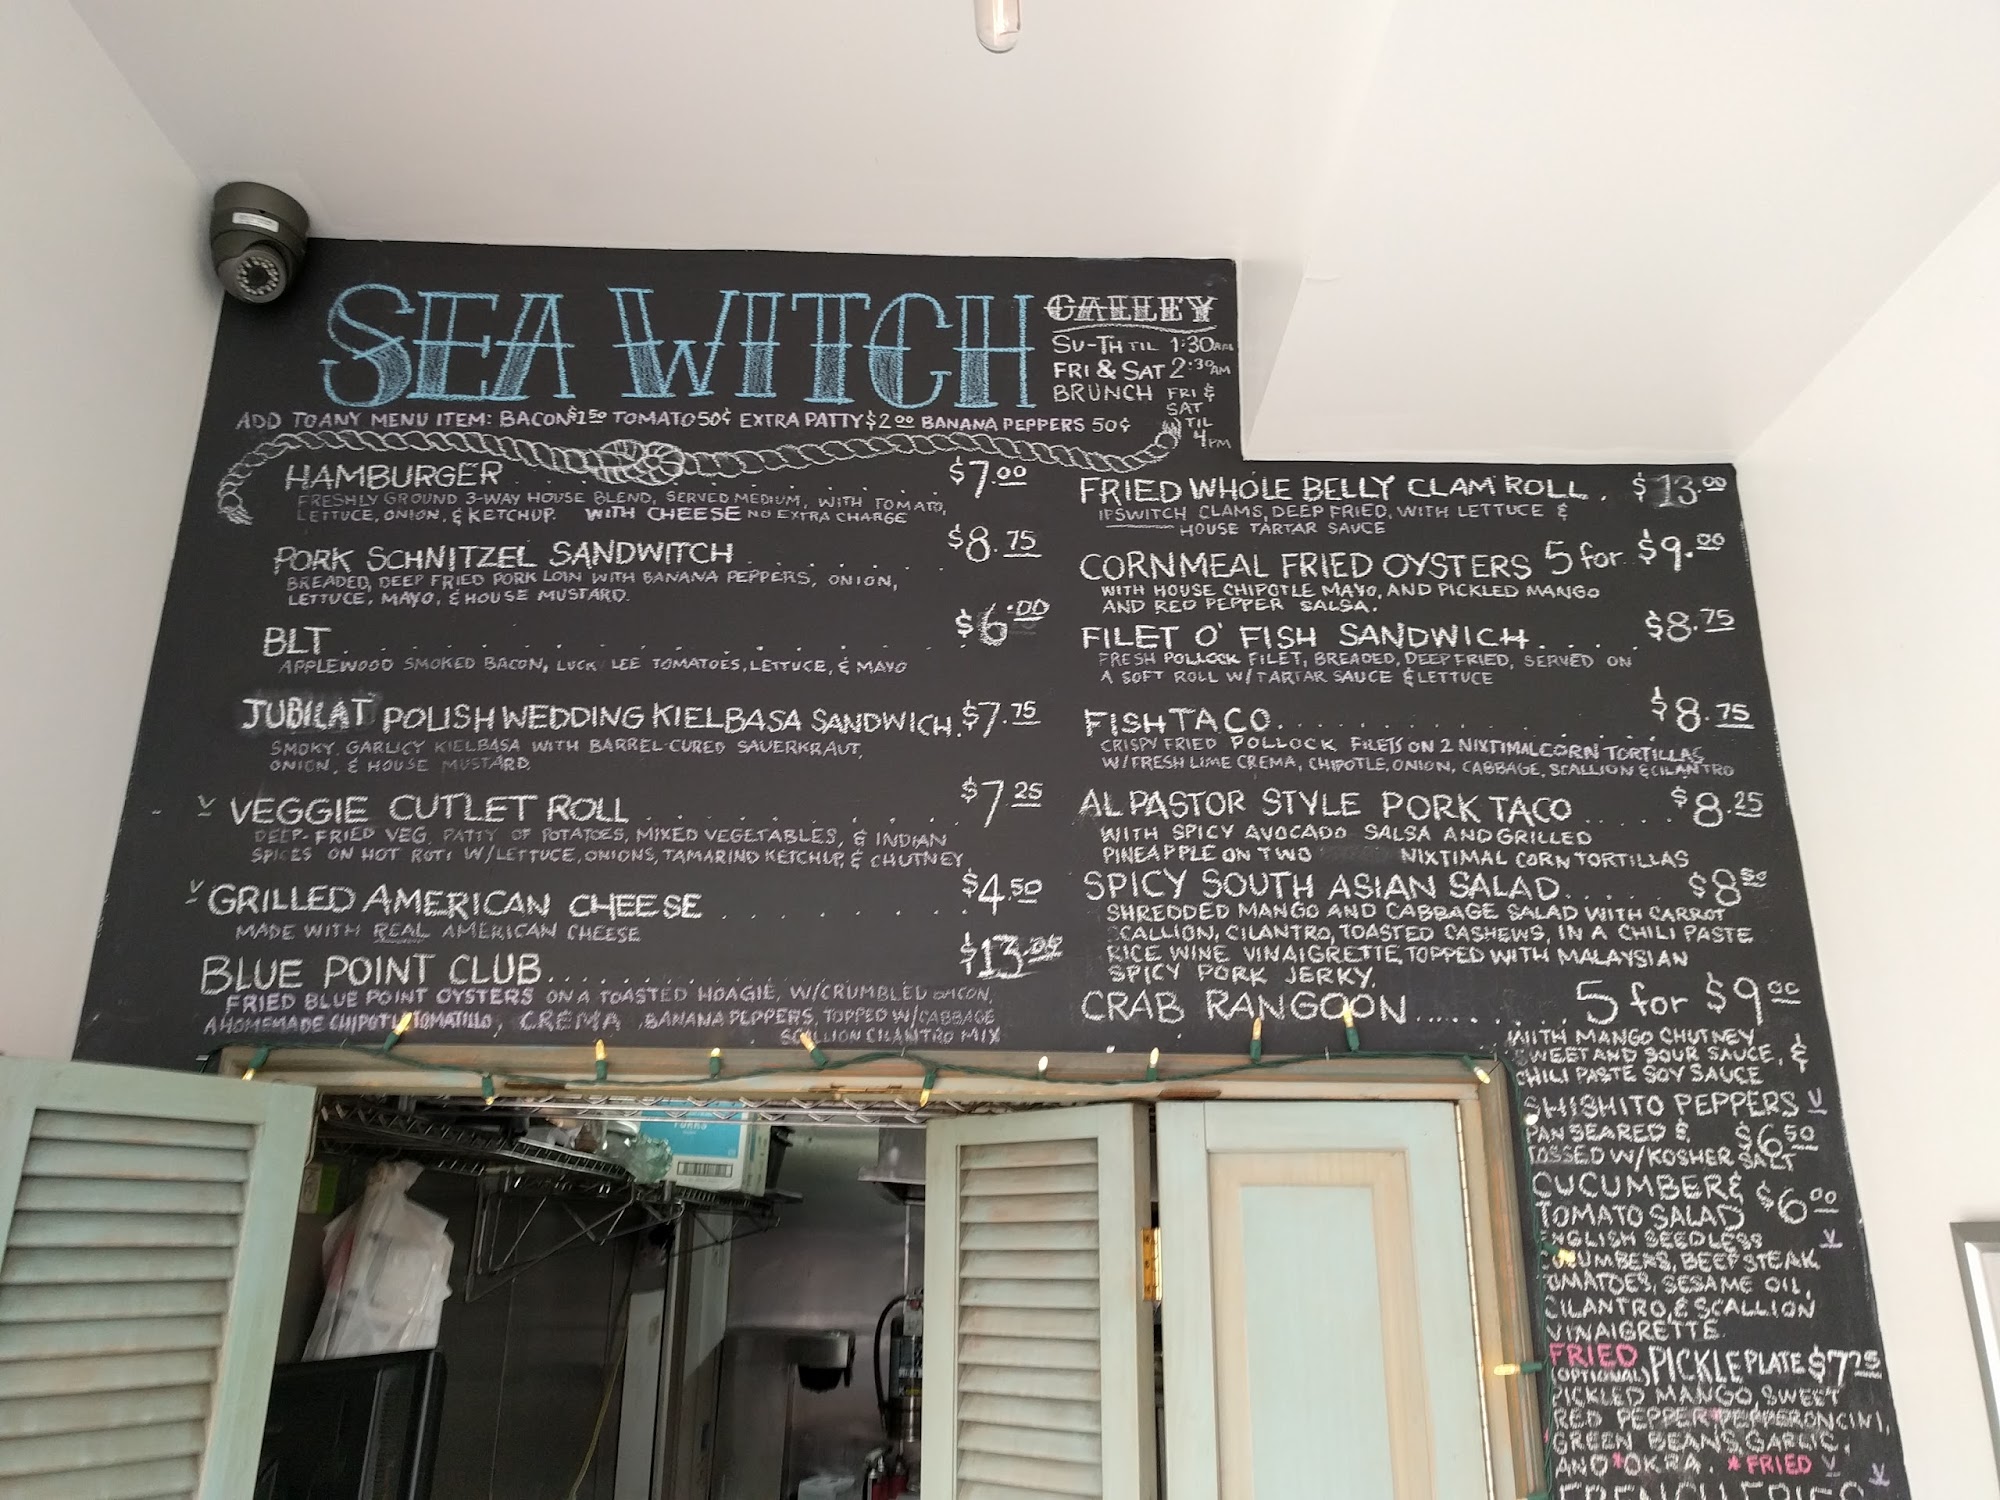 SEA WITCH
GALLEY
SU-TH TIL 1:30AM
FRI & SAT 2:30AM
BRUNCH FRI &
SAT
TIL
4PM
ADD TO ANY MENU ITEM: BACON $1.50 TOMATO 50¢ EXTRA PATTY $2.00 BANANA PEPPERS 50¢
HAMBURGER . . . . . . . . . $7.00
FRESHLY GROUND 3-WAY HOUSE BLEND, SERVED MEDIUM, WITH TOMATO,
LETTUCE, ONION, & KETCHUP. WITH CHEESE NO EXTRA CHARGE
PORK SCHNITZEL SANDWITCH . . . . . $8.75
BREADED, DEEP FRIED PORK LOIN WITH BANANA PEPPERS, ONION,
LETTUCE, MAYO, & HOUSE MUSTARD.
BLT . . . . . . . . . . . . . $6.00
APPLEWOOD SMOKED BACON, LUCKY LEE TOMATOES, LETTUCE, & MAYO
JUBILAT POLISH WEDDING KIELBASA SANDWICH. $7.75
SMOKY, GARLICY KIELBASA WITH BARREL-CURED SAUERKRAUT,
ONION, & HOUSE MUSTARD.
V VEGGIE CUTLET ROLL . . . . . . . . $7.25
DEEP-FRIED VEG. PATTY OF POTATOES, MIXED VEGETABLES, & INDIAN
SPICES ON HOT ROTI W/LETTUCE, ONIONS, TAMARIND KETCHUP, & CHUTNEY
V GRILLED AMERICAN CHEESE . . . . . . . $4.50
MADE WITH REAL AMERICAN CHEESE
BLUE POINT CLUB . . . . . . . . . $13.00
FRIED BLUE POINT OYSTERS ON A TOASTED HOAGIE, W/CRUMBLED BACON,
A HOMEMADE CHIPOTLE TOMATILLO, CREMA, BANANA PEPPERS, TOPPED W/CABBAGE
SCALLION CILANTRO MIX
FRIED WHOLE BELLY CLAM ROLL . $13.00
IPSWITCH CLAMS, DEEP FRIED, WITH LETTUCE &
HOUSE TARTAR SAUCE
CORNMEAL FRIED OYSTERS 5 for $9.00
WITH HOUSE CHIPOTLE MAYO, AND PICKLED MANGO
AND RED PEPPER SALSA.
FILET O' FISH SANDWICH . . . . . $8.75
FRESH POLLOCK FILET, BREADED, DEEP FRIED, SERVED ON
A SOFT ROLL W/TARTAR SAUCE & LETTUCE
FISH TACO . . . . . . . . . . $8.75
CRISPY FRIED POLLOCK FILETS ON 2 NIXTIMAL CORN TORTILLAS
W/FRESH LIME CREMA, CHIPOTLE, ONION, CABBAGE, SCALLION & CILANTRO
AL PASTOR STYLE PORK TACO . . . . $8.25
WITH SPICY AVOCADO SALSA AND GRILLED
PINEAPPLE ON TWO NIXTIMAL CORN TORTILLAS
SPICY SOUTH ASIAN SALAD . . . . . $8.50
SHREDDED MANGO AND CABBAGE SALAD WITH CARROT
SCALLION, CILANTRO, TOASTED CASHEWS, IN A CHILI PASTE
RICE WINE VINAIGRETTE, TOPPED WITH MALAYSIAN
SPICY PORK JERKY.
CRAB RANGOON . . . . . . . 5 for $9.00
WITH MANGO CHUTNEY
SWEET AND SOUR SAUCE, &
CHILI PASTE SOY SAUCE
SHISHITO PEPPERS V
PAN SEARED & $6.50
TOSSED W/KOSHER SALT
CUCUMBER & $6.00
TOMATO SALAD
ENGLISH SEEDLESS V
CUCUMBERS, BEEFSTEAK
TOMATOES, SESAME OIL,
CILANTRO, & SCALLION
VINAIGRETTE.
FRIED (OPTIONAL) PICKLE PLATE $7.25
PICKLED MANGO, SWEET
RED PEPPER, *PEPPERONCINI,
GREEN BEANS, GARLIC,
AND *OKRA. *FRIED V
FRENCH FRIES V